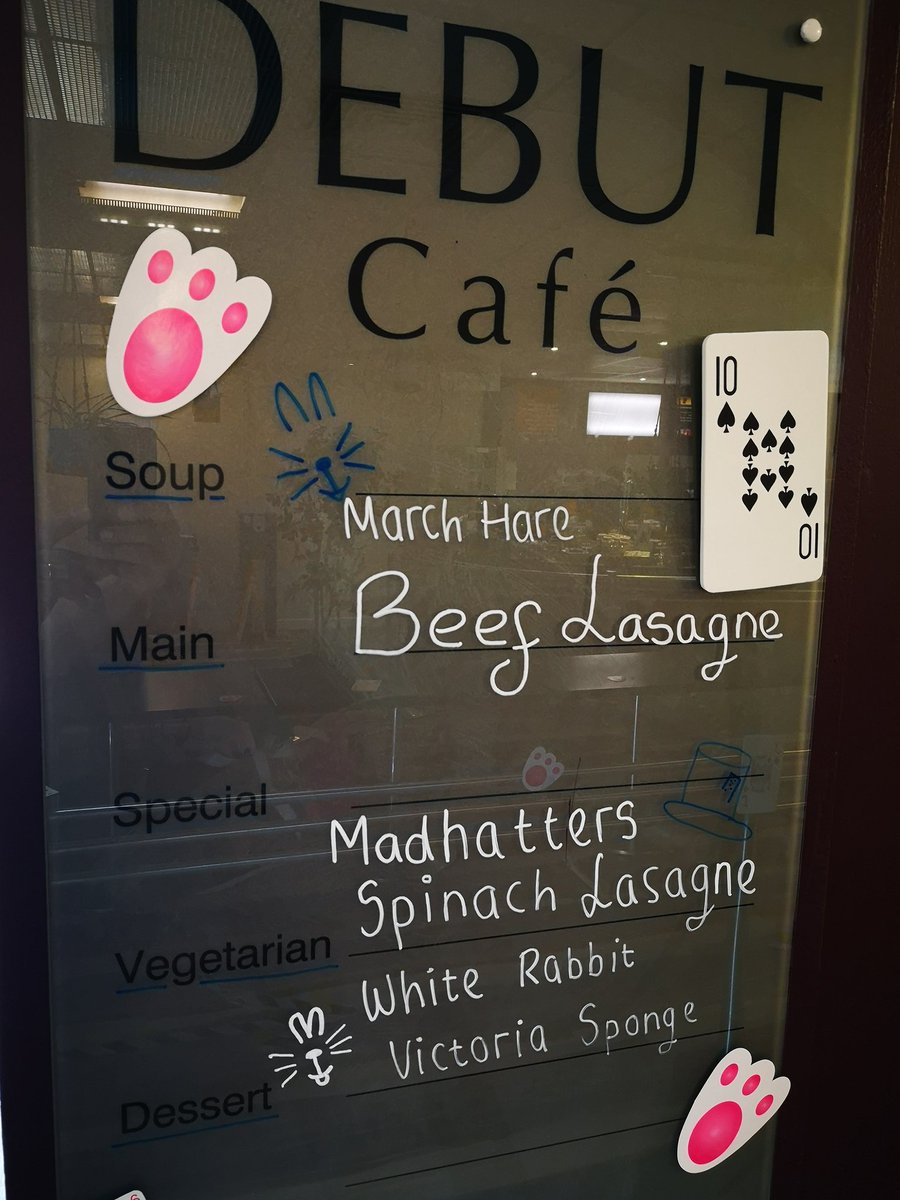 DEBUT
Café
10
Soup
March Hare
Main
Beef Lasagne
10
Special
Madhatters
Spinach Lasagne
Vegetarian
White Rabbit
Victoria Sponge
Dessert